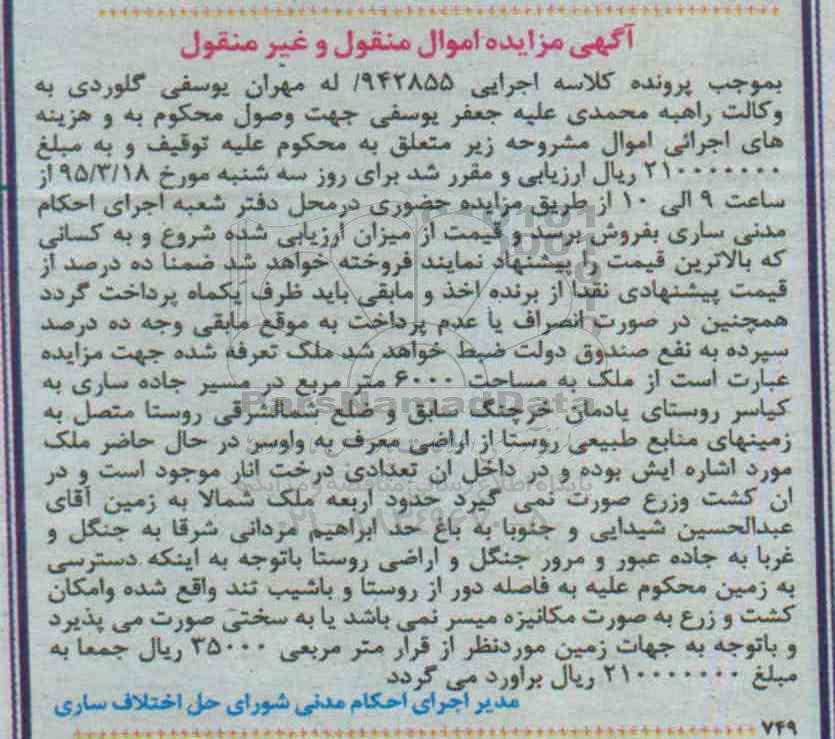 آگهی مزایده اموال منقول و غیر منقول
بموجب پرونده کلاسه اجرایی ۹۴۲۸۵۵/ له مهران یوسفی گلوردی به
وکالت راهبه محمدی علیه جعفر یوسفی جهت وصول محکوم به و هزینه
های اجرائی اموال مشروحه زیر متعلق به محکوم علیه توقیف و به مبلغ
۲۱۰۰۰۰۰۰۰ ریال ارزیابی و مقرر شد برای روز سه شنبه مورخ ۹۵/۳/۱۸ از
ساعت ۹ الی ۱۰ از طریق مزایده حضوری درمحل دفتر شعبه اجرای احکام
مدنی ساری بفروش برسد و قیمت از میزان ارزیابی شده شروع و به کسانی
که بالاترین قیمت را پیشنهاد نمایند فروخته خواهد شد ضمنا ده درصد از
قیمت پیشنهادی نقدا از برنده اخذ و مابقی باید ظرف یکماه پرداخت گردد
همچنین در صورت انصراف یا عدم پرداخت به موقع مابقی وجه ده درصد
سپرده به نفع صندوق دولت ضبط خواهد شد ملک تعرفه شده جهت مزایده
عبارت است از ملک به مساحت ۶۰۰۰ متر مربع در مسیر جاده ساری به
کیاسر روستای یادمان خرچنگ سابق و ضلع شمالشرقی روستا متصل به
زمینهای منابع طبیعی روستا از اراضی معرف به واوسر در حال حاضر ملک
مورد اشاره ایش بوده و در داخل ان تعدادی درخت انار موجود است و در
ان کشت وزرع صورت نمی گیرد حدود اربعه ملک شمالا به زمین آقای
عبدالحسین شیدایی و جنوبا به باغ حد ابراهیم مردانی شرقا به جنگل و
غربا به جاده عبور و مرور جنگل و اراضی روستا باتوجه به اینکه دسترسی
به زمین محکوم علیه به فاصله دور از روستا و باشیب تند واقع شده وامکان
کشت و زرع به صورت مکانیزه میسر نمی باشد یا به سختی صورت می پذیرد
و باتوجه به جهات زمین موردنظر از قرار متر مربعی ۳۵۰۰۰ ریال جمعا به
مبلغ ۲۱۰۰۰۰۰۰۰ ریال براورد می گردد
مدیر اجرای احکام مدنی شورای حل اختلاف ساری
۷۴۹
ParsNamadData